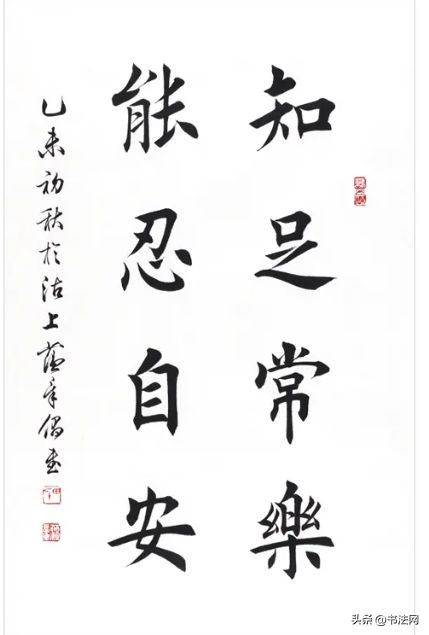 知足常樂
能忍自安
乙未初秋於沽上
头条 @书法网